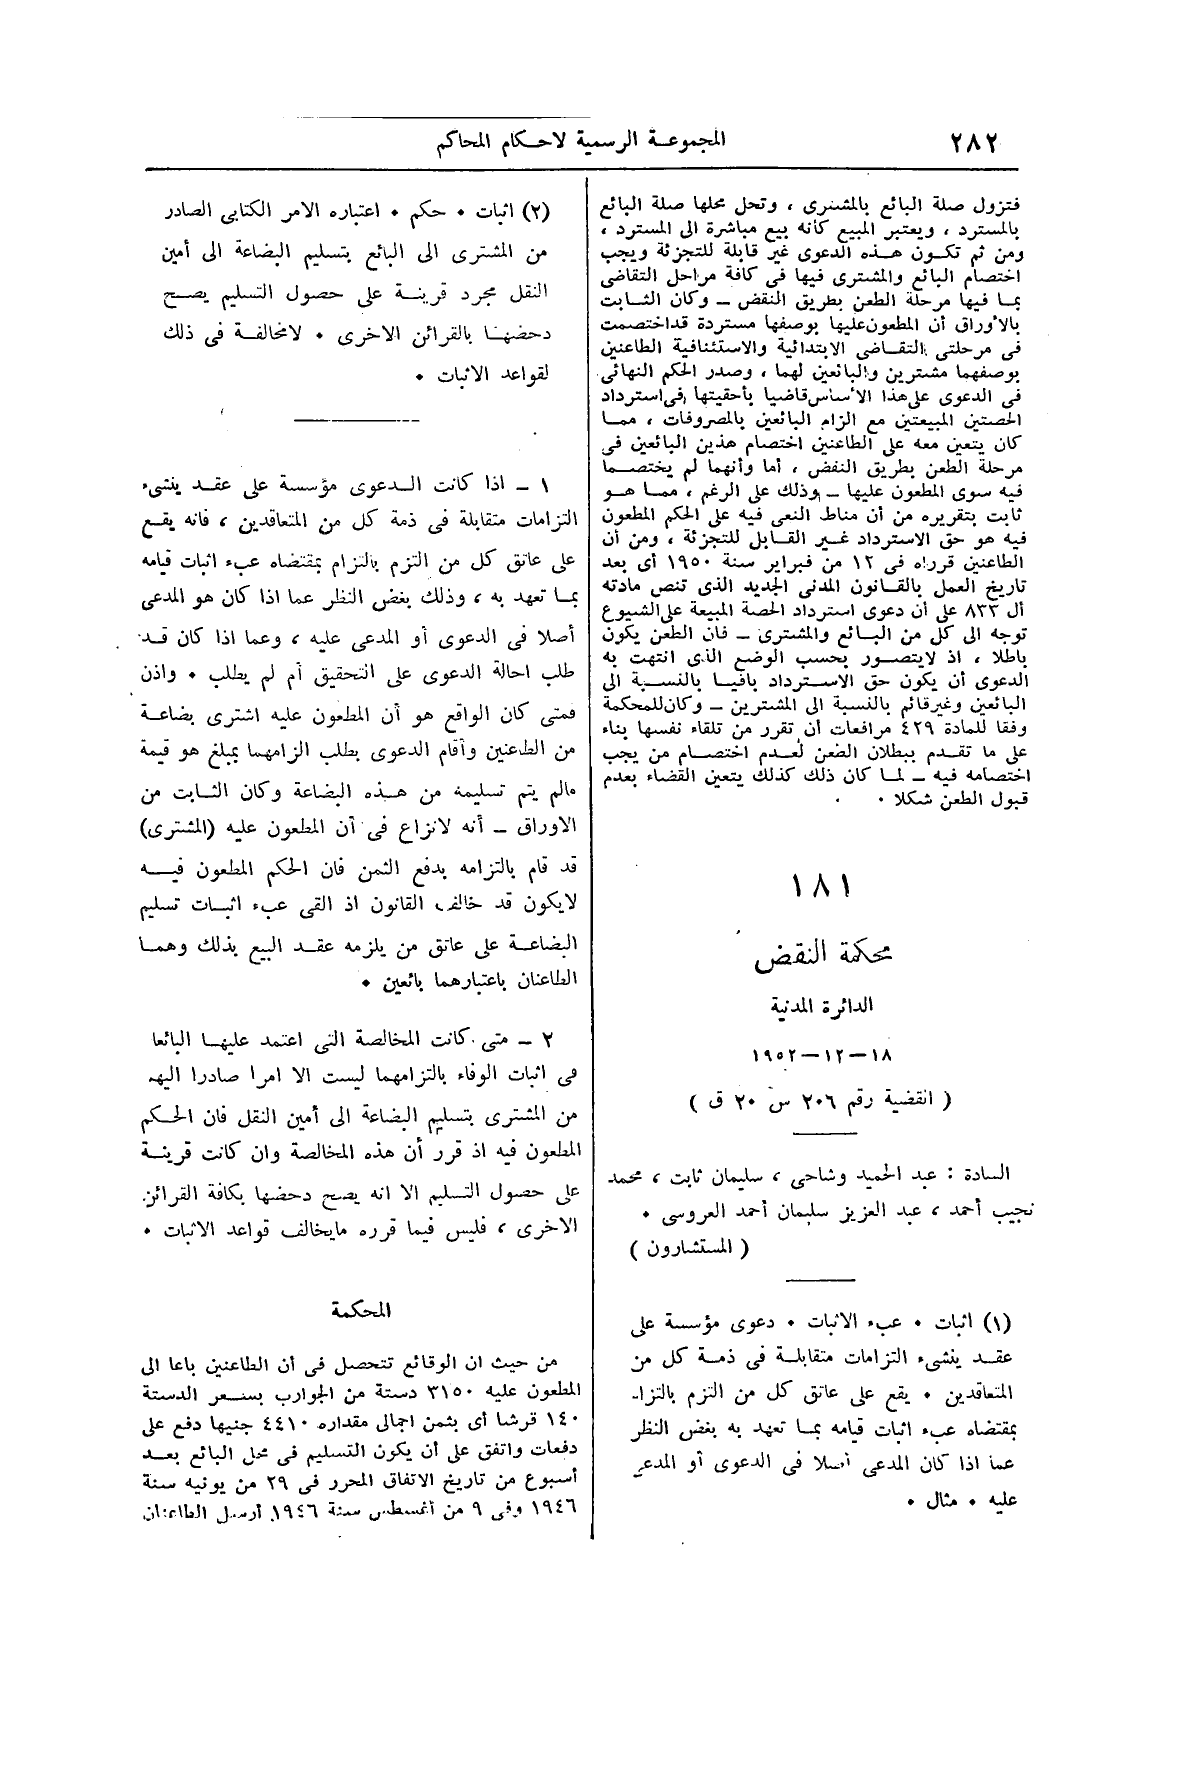 ٢٨٢
المجموعة الرسمية لاحكام المحاكم
فتزول صلة البائع بالمشترى ، وتحل محلها صلة البائع
بالمسترد ، ويعتبر المبيع كأنه بيع مباشرة الى المسترد ،
ومن ثم تكون هذه الدعوى غير قابلة للتجزئة ويجب
اختصام البائع والمشترى فيها فى كافة مراحل التقاضى
بما فيها مرحلة الطعن بطريق النقض ــ وكان الثابت
بالأوراق أن المطعون عليها بوصفها مستردة قد اختصمت
فى مرحلتى التقاضى الابتدائية والاستئنافية الطاعنين
بوصفهما مشترين والبائعين لهما ، وصدر الحكم النهائى
فى الدعوى على هذا الأساس قاضيا بأحقيتها فى استرداد
الحصتين المبيعتين مع الزام البائعين بالمصروفات ، مما
كان يتعين معه على الطاعنين اختصام هذين البائعين فى
مرحلة الطعن بطريق النقض ، أما وأنهما لم يختصما
فيه سوى المطعون عليها ــ وذلك على الرغم ، مما هو
ثابت بتقريره من أن مناط النعى فيه على الحكم المطعون
فيه هو حق الاسترداد غير القابل للتجزئة ، ومن أن
الطاعنين قرراه فى ١٢ من فبراير سنة ١٩٥٠ أى بعد
تاريخ العمل بالقانون المدنى الجديد الذى تنص مادته
أل ٨٣٣ على أن دعوى استرداد الحصة المبيعة على الشيوع
توجه الى كل من البائع والمشترى ــ فان الطعن يكون
باطلا ، اذ لايتصور بحسب الوضع الذى انتهت به
الدعوى أن يكون حق الاسترداد باقيا بالنسبة الى
البائعين وغير قائم بالنسبة الى المشترين ــ وكان للمحكمة
وفقا للمادة ٤٢٩ مرافعات أن تقرر من تلقاء نفسها بناء
على ما تقدم ببطلان الطعن لعدم اختصام من يجب
اختصامه فيه ــ لما كان ذلك كذلك يتعين القضاء بعدم
قبول الطعن شكلا •
١٨١
محكمة النقض
الدائرة المدنية
١٨ – ١٢ – ١٩٥٢
( القضية رقم ٢٠٦ س ٢٠ ق )
السادة : عبد الحميد وشاحى ، سليمان ثابت ، محمد
نجيب أحمد ، عبد العزيز سليمان أحمد العروسى •
( المستشارون )
(١) اثبات • عبء الاثبات • دعوى مؤسسة على
عقد ينشىء التزامات متقابلة فى ذمة كل من
المتعاقدين • يقع على عاتق كل من التزم بالتزا
بمقتضاه عبء اثبات قيامه بما تعهد به بغض النظر
عما اذا كان المدعى أصلا فى الدعوى أو المدعى
عليه • مثال •
(٢) اثبات • حكم • اعتباره الامر الكتابى الصادر
من المشترى الى البائع بتسليم البضاعة الى أمين
النقل مجرد قرينة على حصول التسليم يصح
دحضها بالقرائن الاخرى • لامخالفة فى ذلك
لقواعد الاثبات •
١ ــ اذا كانت الدعوى مؤسسة على عقد ينشىء
التزامات متقابلة فى ذمة كل من المتعاقدين ، فانه يقع
على عاتق كل من التزم بالتزام بمقتضاه عبء اثبات قيامه
بما تعهد به ، وذلك بغض النظر عما اذا كان هو المدعى
أصلا فى الدعوى أو المدعى عليه ، وعما اذا كان قد
طلب احالة الدعوى على التحقيق أم لم يطلب • واذن
فمتى كان الواقع هو أن المطعون عليه اشترى بضاعة
من الطاعنين وأقام الدعوى بطلب الزامهما بمبلغ هو قيمة
مالم يتم تسليمه من هذه البضاعة وكان الثابت من
الاوراق ــ أنه لانزاع فى أن المطعون عليه (المشترى)
قد قام بالتزامه بدفع الثمن فان الحكم المطعون فيه
لايكون قد خالف القانون اذ القى عبء اثبات تسليم
البضاعة على عاتق من يلزمه عقد البيع بذلك وهما
الطاعنان باعتبارهما بائعين •
٢ ــ متى كانت المخالصة التى اعتمد عليها البائعا
فى اثبات الوفاء بالتزامهما ليست الا امرا صادرا اليهم
من المشترى بتسليم البضاعة الى أمين النقل فان الحكم
المطعون فيه اذ قرر أن هذه المخالصة وان كانت قرينة
على حصول التسليم الا انه يصح دحضها بكافة القرائن
الاخرى ، فليس فيما قرره مايخالف قواعد الاثبات •
المحكمة
من حيث ان الوقائع تتحصل فى أن الطاعنين باعا الى
المطعون عليه ٣١٥٠ دستة من الجوارب بسعر الدستة
١٤٠ قرشا أى بثمن اجمالى مقداره ٤٤١٠ جنيها دفع على
دفعات واتفق على أن يكون التسليم فى محل البائع بعد
أسبوع من تاريخ الاتفاق المحرر فى ٢٩ من يونيه سنة
١٩٤٦ وفى ٩ من أغسطس سنة ١٩٤٦ أرسل الطاعنان